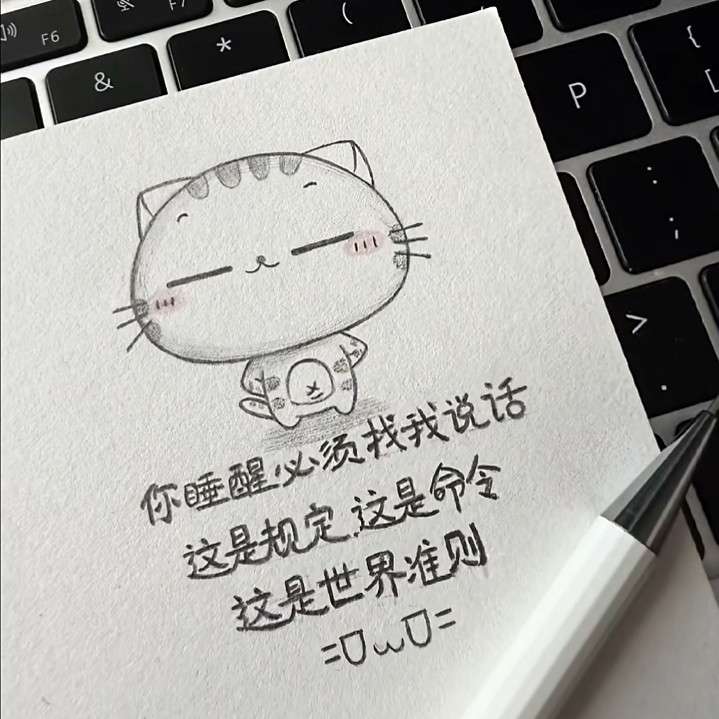 F6
F7
&
*
(
P
{
[
:
;
>
.
你睡醒必须找我说话
这是规定.这是命令
这是世界准则
=UwU=